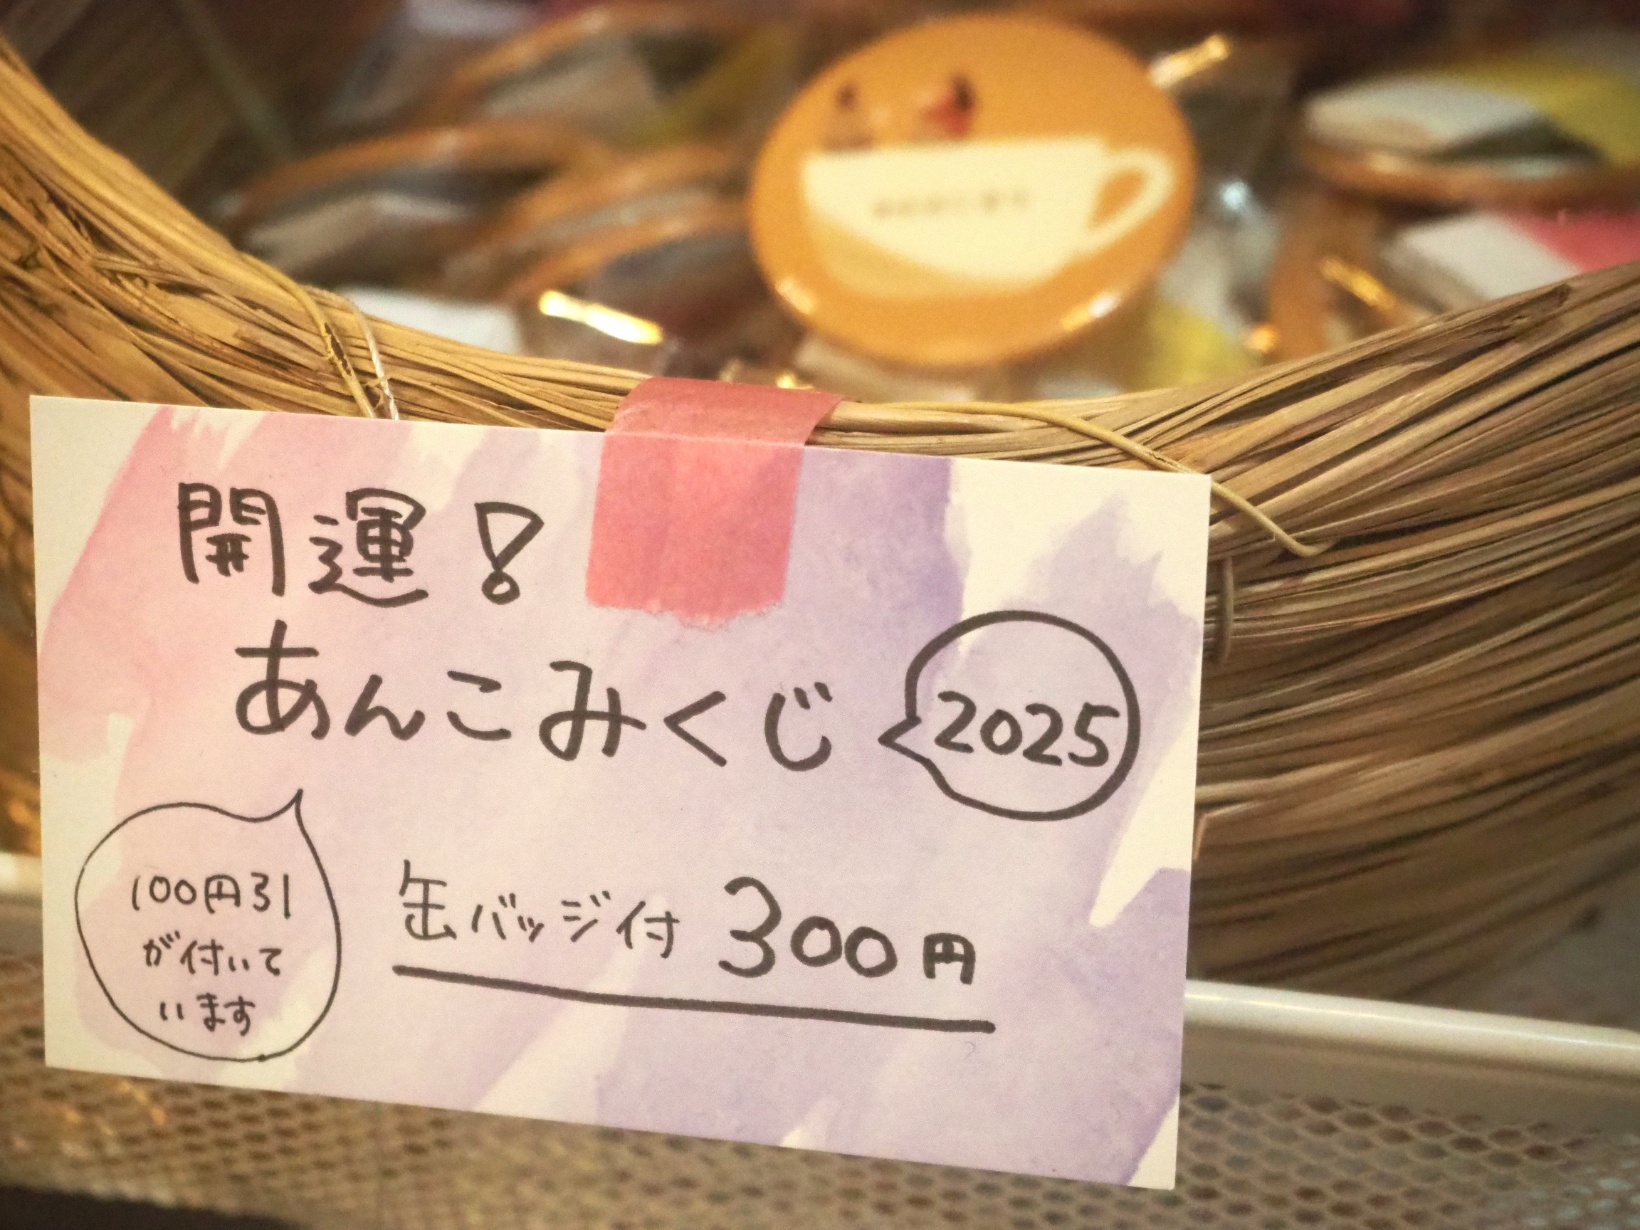 開運!
あんこみくじ
2025
100円引
が付いて
います
缶バッジ付 300円